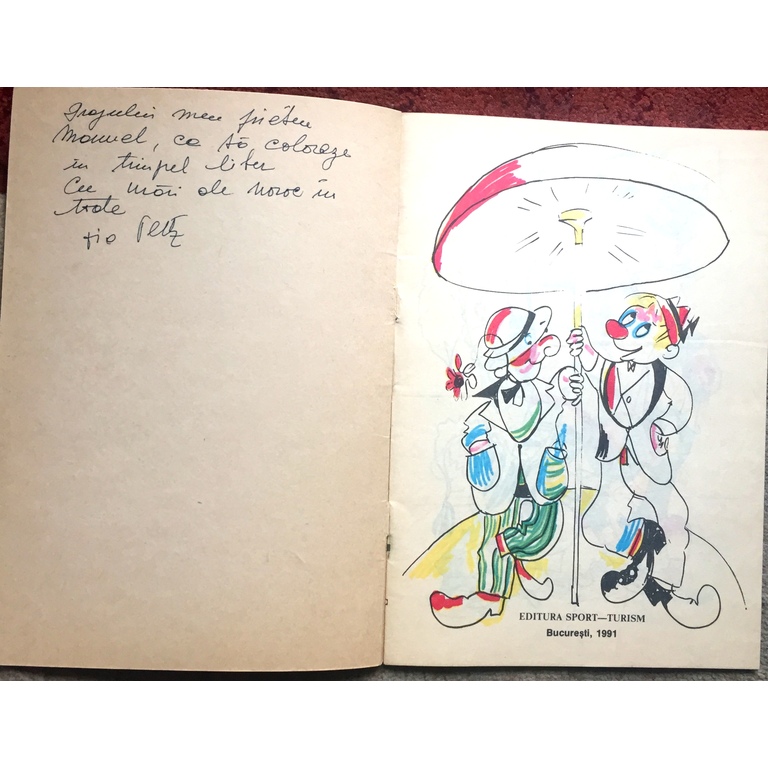 Dragului meu prieten
Manuel, ca să coloreze
în timpul liber
Cu mări de noroc în
toate
EDITURA SPORT—TURISM
București, 1991